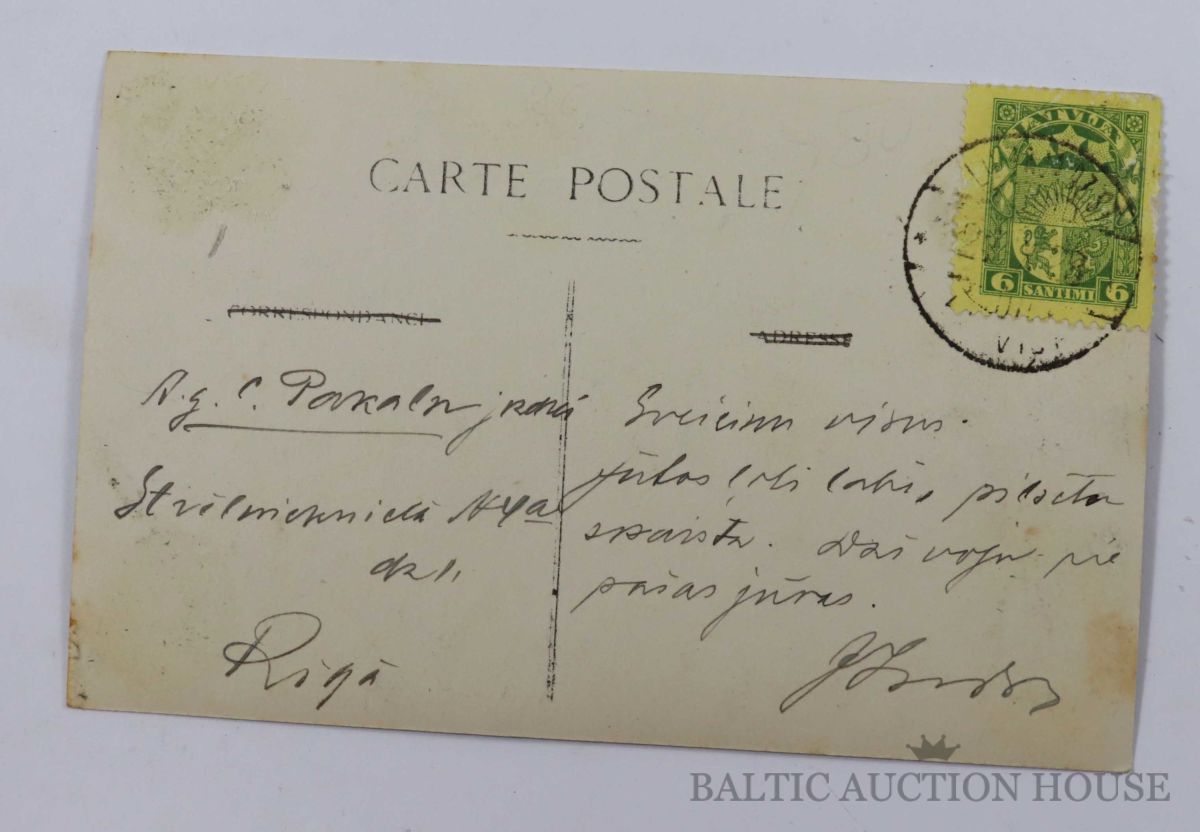 CARTE POSTALE
CORRESPONDANCE
ADRESSE
LATVIJA
6 SANTIMI 6
A.g. C. Pakaln jkdzei
Strēlnieknielā N4a
dz 1.
Rīgā
Sveicinu visus.
Jūtos ļoti labi, pilsēta
skaista. Dzīvoju pie
pašas jūras.
BALTIC AUCTION HOUSE